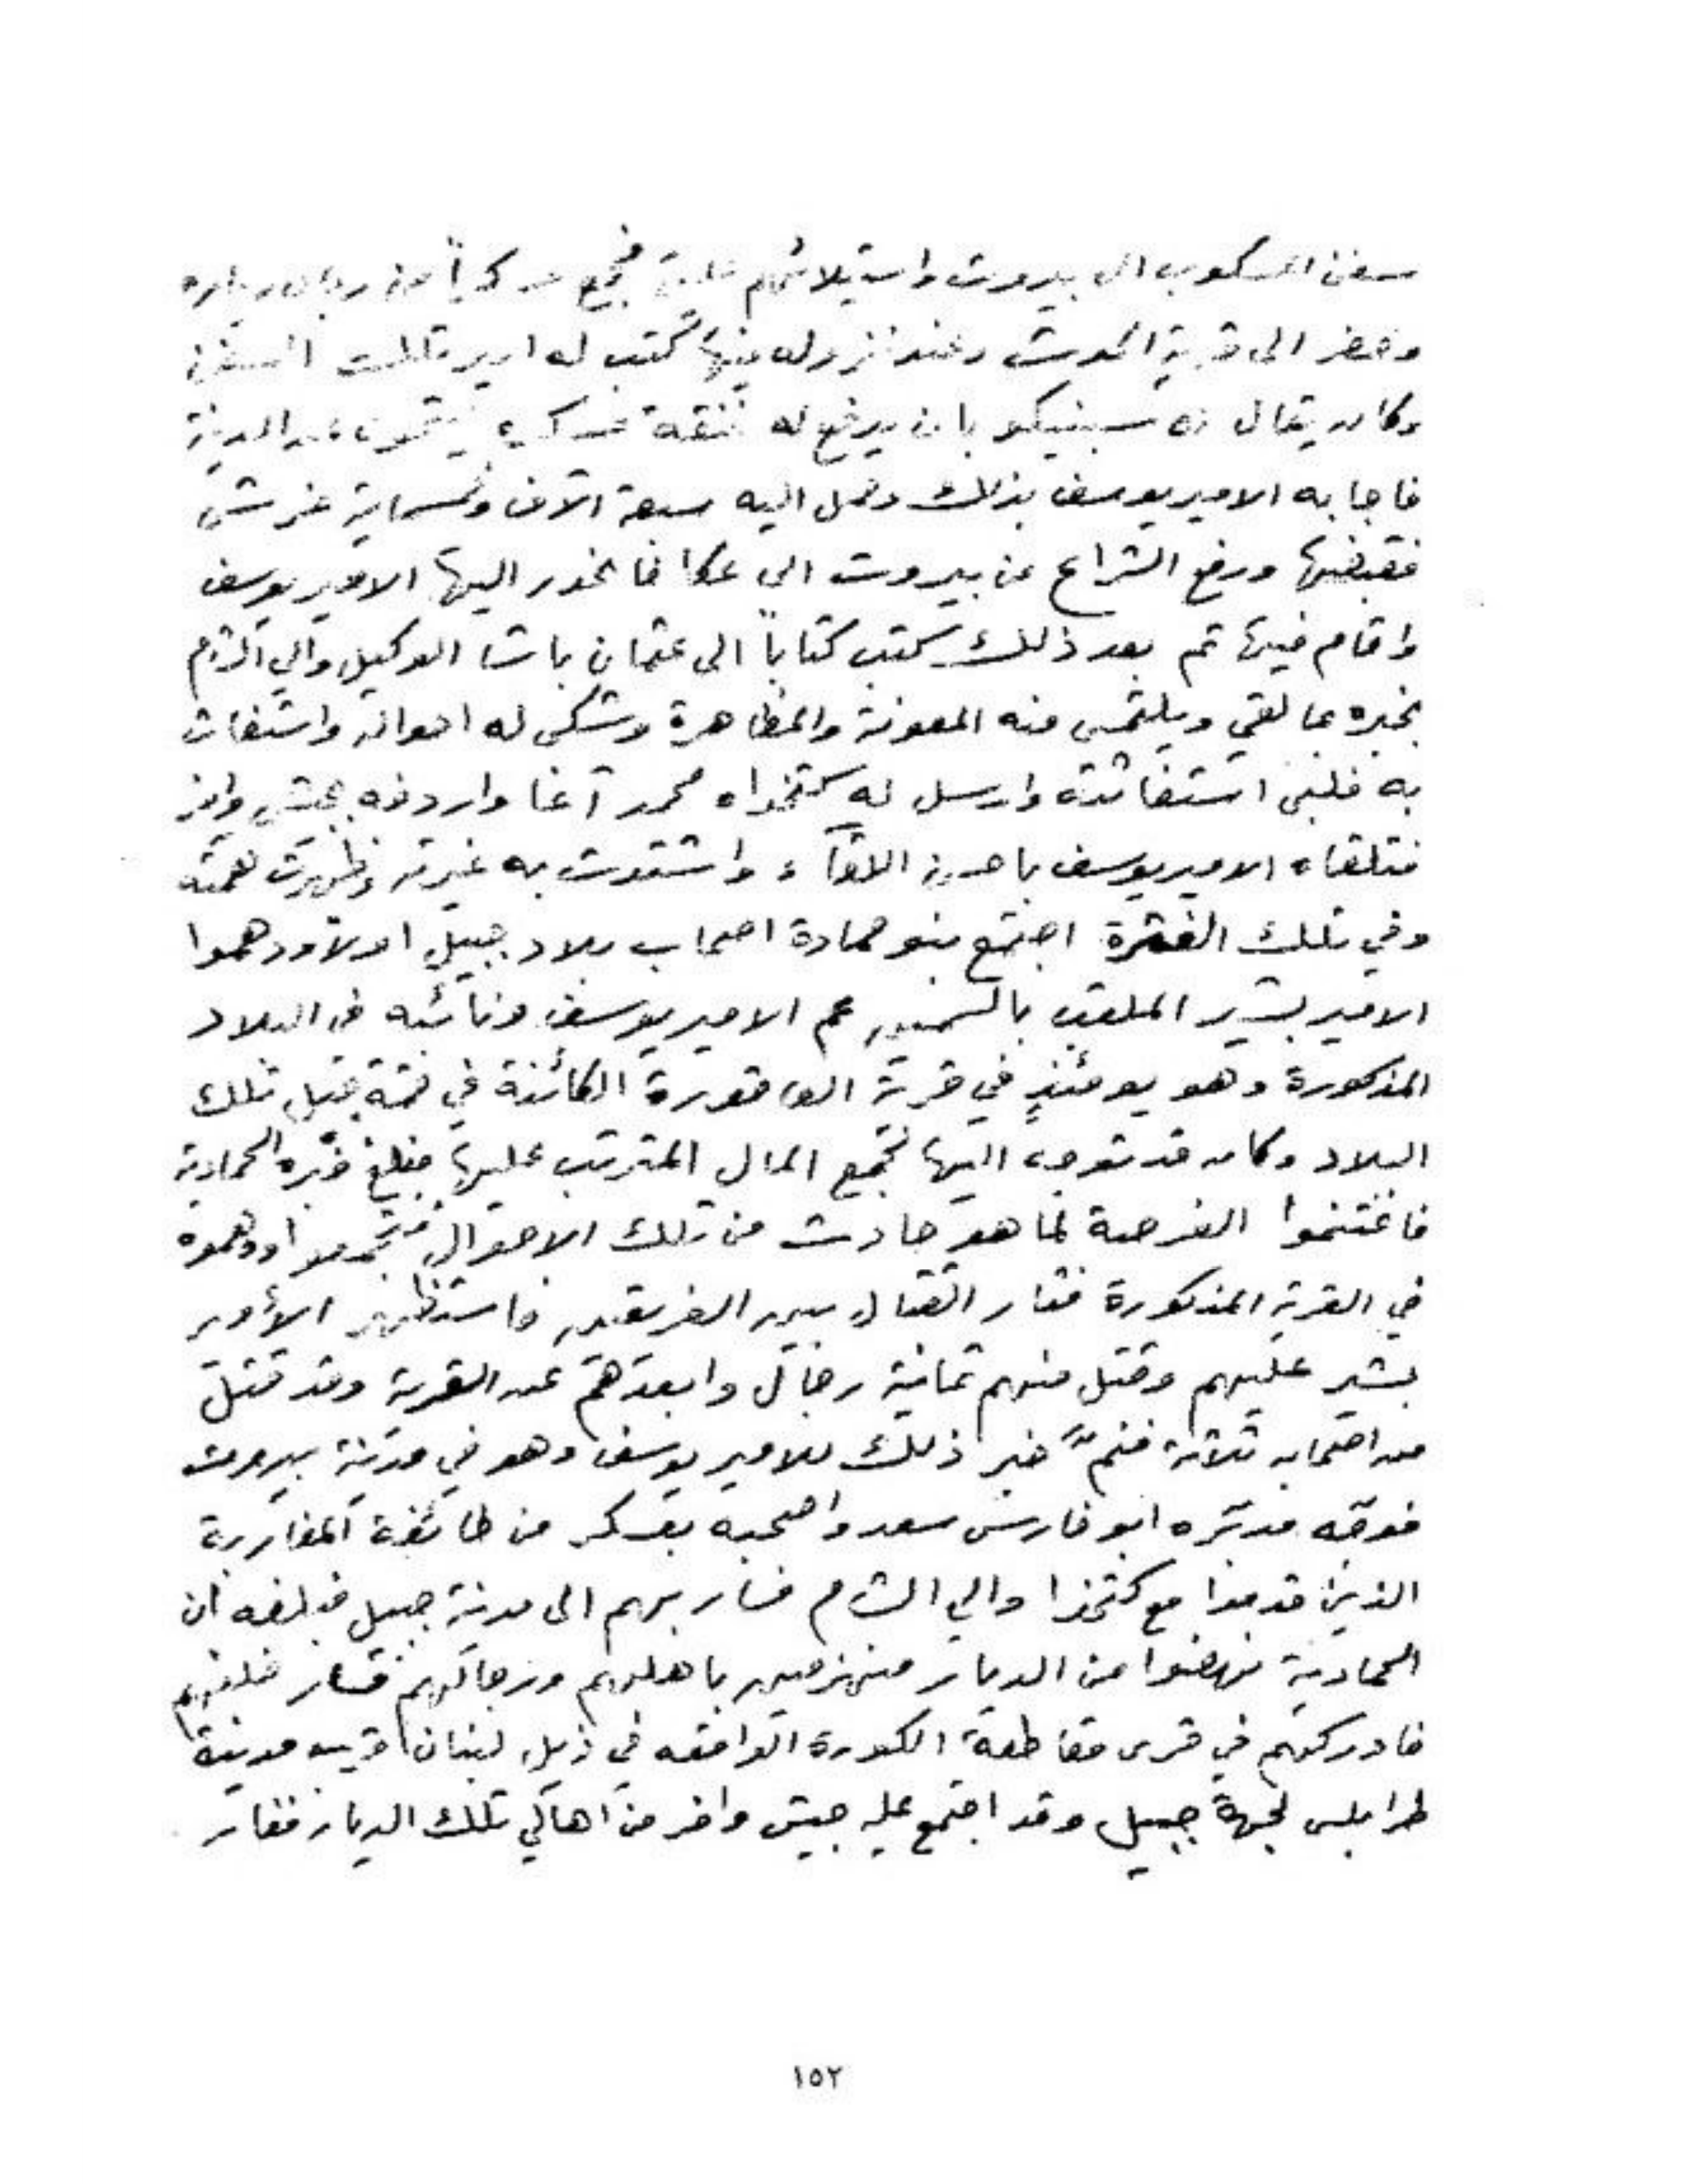 سفن المسكوب الى بيروت واستيلائهم عليها فجمع عسكراً من رجال بلاده
وحضر الى قرية الحدث وعند نزوله فيها كتب له امير تلك السفن
وكان يقال له سبنيكو بان يدفع له نفقة عسكره عن المدينة
فاجابه الامير يوسف بذلك وحمل اليه سبعة آلاف وخمسماية غرش
فقبضها ورفع الشراع عن بيروت الى عكا فانحدر اليها الامير يوسف
واقام فيها ثم بعد ذلك كتب كتاباً الى عثمان باشا الوكيل والي الشام
يخبره بما لقي ويلتمس منه المعونة والمظاهرة وشكى له احواله واستغاث
به فلبى استغاثته وارسل له كتخداه محمد آغا واردفه بجيش وافر
فتلقاه الامير يوسف باحسن اللقآء واشتدت به غيرته وظهرت همته
وفي تلك الفترة اجتمع بنو حمادة اصحاب بلاد جبيل اولاً ودهموا
الامير بشير الملقب بالسمين عم الامير يوسف ونائبه في البلاد
المذكورة وهو يومئذٍ في قرية العاقورة الكائنة في قمة جبل تلك
البلاد وكان قد توجه اليها لجمع المال المترتب عليها فبلغ خبره الحمادية
فاغتنموا الفرصة لما هو حادث من تلك الاحوال فتجمعوا ودهموه
في القرية المذكورة فثار القتال بين الفريقين فاستظهر الأمير
بشير عليهم وقتل منهم ثمانية رجال وابعدهم عن القرية وقد قتل
من اصحابه ثلاثة فنمّ خبر ذلك للامير يوسف وهو في مدينة بيروت
فوجّه مدبّره ابو فارس سعد واصحبه بعسكر من طائفة المغاربة
الذين قدموا مع كتخدا والي الشام فسار بهم الى مدينة جبيل فبلغه ان
الحمادية نهضوا من الديار منهزمين باهلهم ورجالهم فسار خلفهم
فادركهم في قرى مقاطعة الكورة الواقعه في ذيل لبنان قرب مدينة
طرابلس لجهة جبيل وقد اجتمع عليه جيش وافر من اهالي تلك الديار فثار
١٥٢